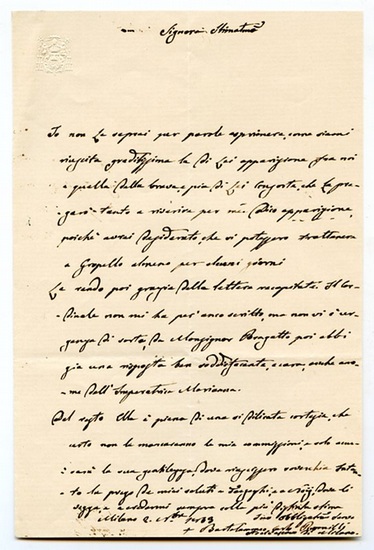 Signora Stimatma
Io non Le saprei per parole esprimere, come siami
riescita graditissima la di Lei apparizione fra noi
e quella della brava e pia di Lei Consorte, che La pre
garò tanto a riverire per me. Dico apparizione,
poichè avrei desiderato, che vi poteste trattenere
a Gropello almeno per alcuni giorni
Le rendo poi grazie della lettera recapitata. Il Car-
dinale non mi ha per anco scritto, ma non vi è ur-
genza di sorta, da Monsignor Bragatto poi ebbi
già una risposta ben soddisfacente, e cara, anche a no-
me dell'Imperatrice Marianna.
Del resto Ella è piena di una sì delicata cortesia, che
certo non le mancaranno le mie commissioni, e solo
la sua gentilezza, dove riescissero soverchie. Intan-
to la prego de' miei saluti a
e a credermi sempre colla più distinta stima
Milano 2. 1839
Suo Obbligatmo Servo
+ Bartolomeo Carlo Romilli
Arcivescovo di Milano